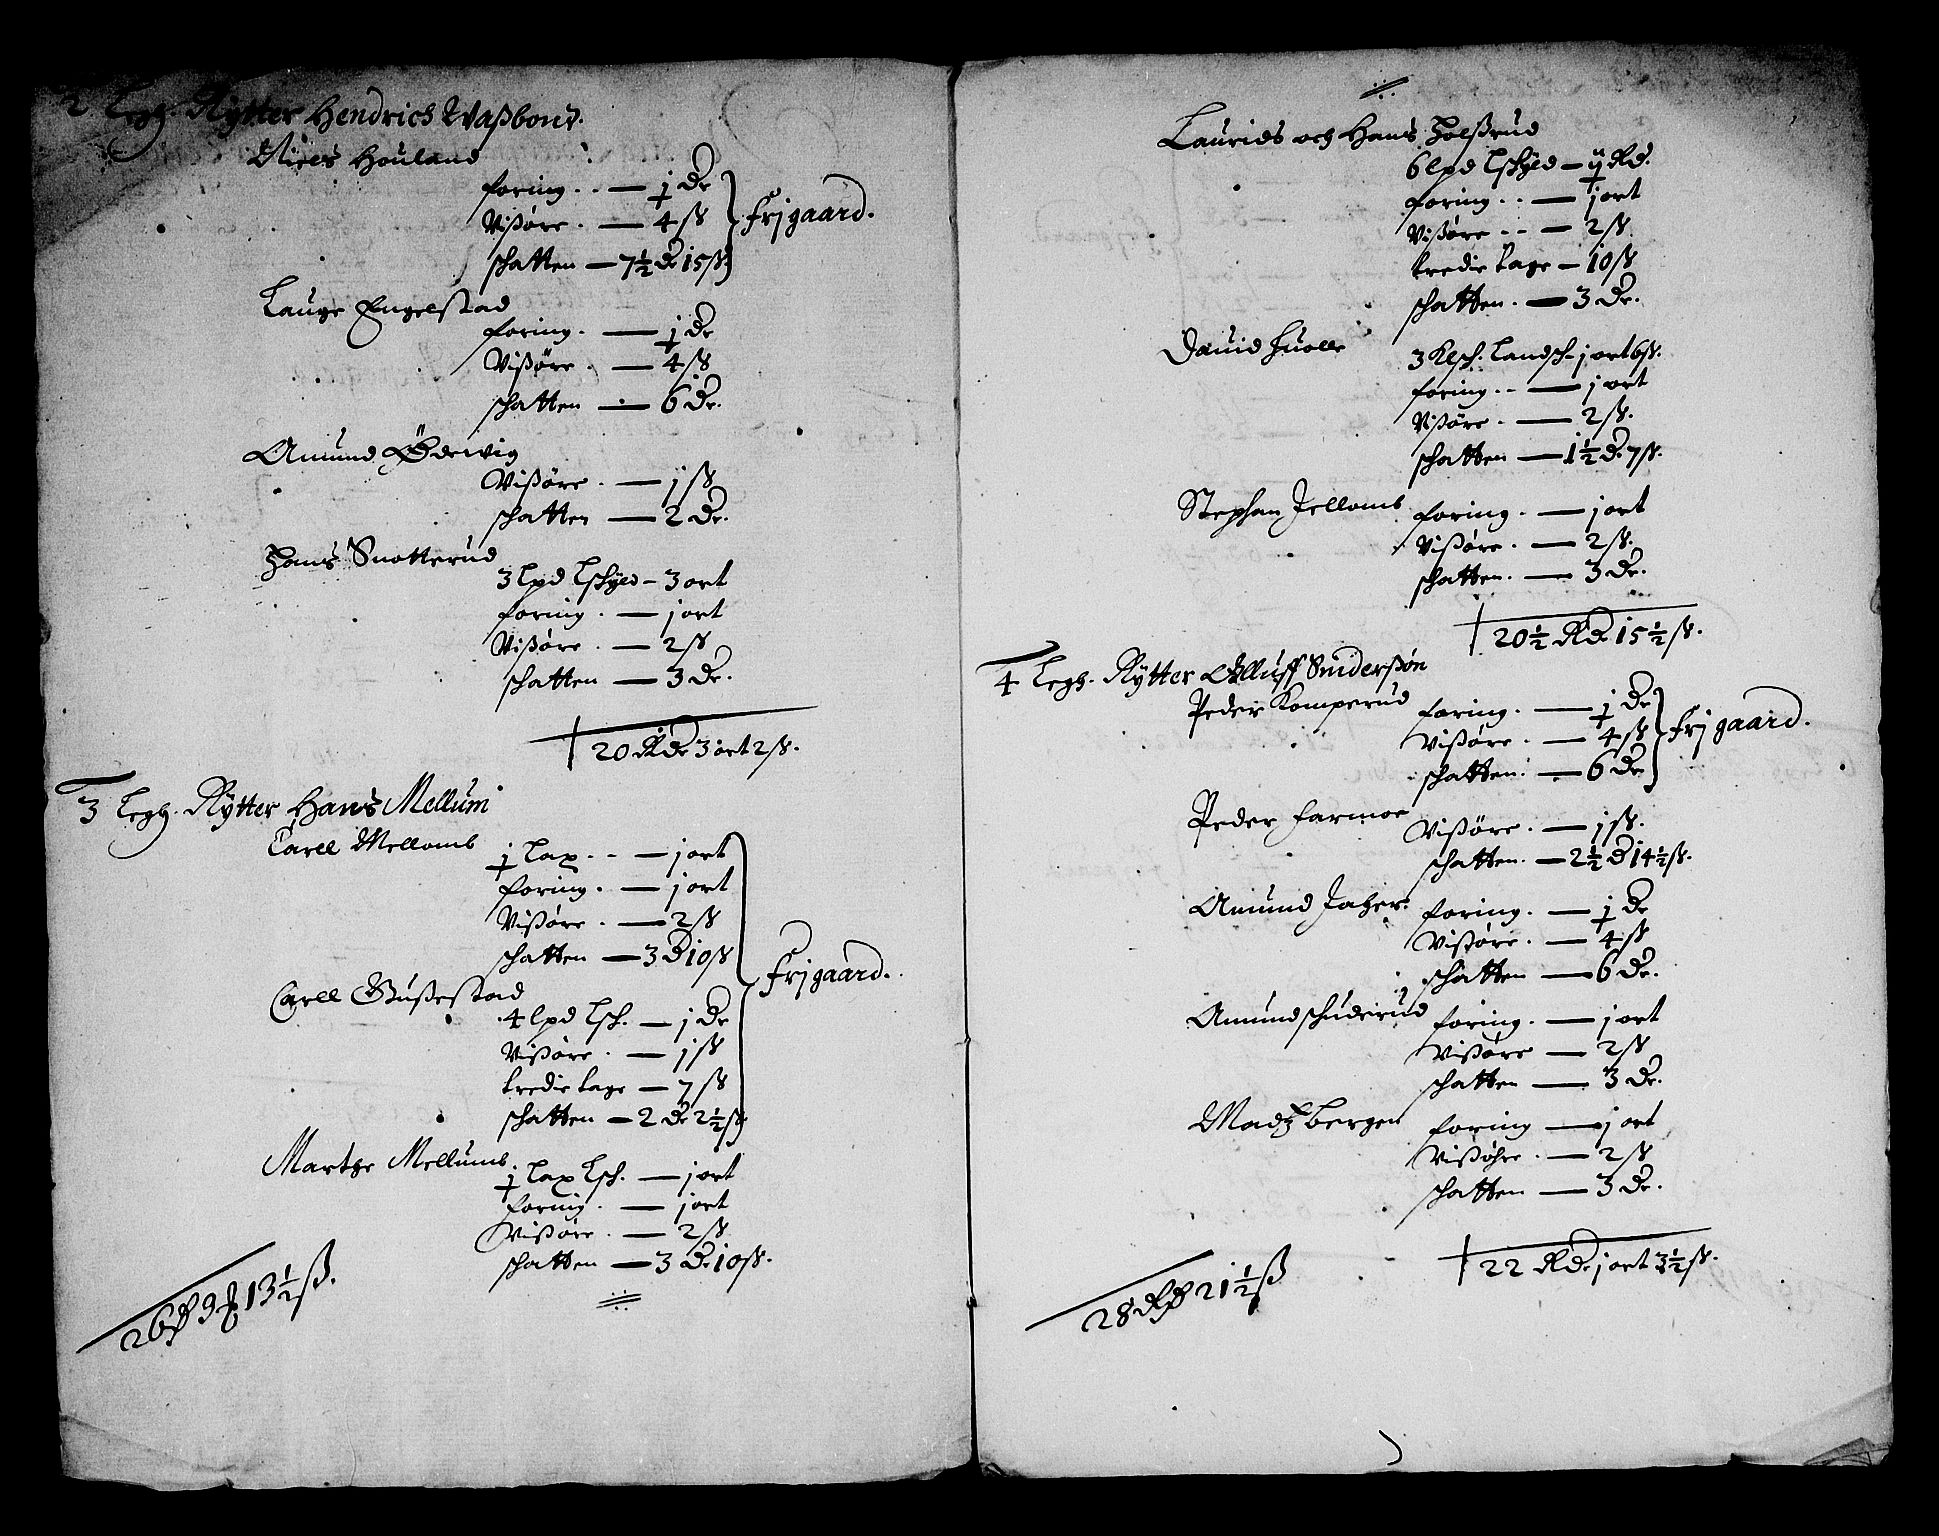 2 Legh. Rytter Hendrich Waßbond.
Niels Houland
foring . . — j Dr
Vißöre . — 4 ß
schatten — 7½ Dr 15 ß
frjgaard.
Lauge Engelstad
foring . — j Dr
Vißöre . — 4 ß
schatten — 6 Dr.
Amund Ödewig
Vißöre . — j ß
schatten — 2 Dr.
Hans Snotterud
3 lpd lschyld – 3 ort
foring . — j ort
Vißöre . — 2 ß
schatten — 3 Dr.
20 Rdr 3 ort 2 ß.
3 Legh. Rytter Hans Mellum
Carll Mellomb
j lax . - — j ort
foring . — j ort
Vißöre . — 2 ß
schatten — 3 D 10 ß
frjgaard.
Carll Gußestad
4 lpd lsch. — j Dr
Vißöre . — j ß
tredie tage — 7 ß
schatten — 2 Dr 2½ ß
Marthe Mellumb.
j lax lsch. — j ort
foring . — j ort
Vißöre . — 2 ß
schatten — 3 D. 10 ß.
13½ ß.
Laurids och Hans Holßrud
6 lpd lschyld – ij Rd.
foring . . — j ort
Vißöre . - — 2 ß.
tredie tage — 10 ß
schatten . — 3 Dr.
Dauid Huolle
3 Klsch. landsch – j ort 6 ß.
foring . - — j ort
Vißöre . — 2 ß.
schatten — 1½ D. 7 ß.
Stephan Jellomb
foring . — j ort
Vißöre . — 2 ß.
schatten . — 3 Dr.
20½ Rdr 15½ ß.
4 Legh. Rytter Olluff Sinderßön
Peder Komperud
foring . — j Dr
Vißöre . — 4 ß
schatten . — 6 Dr
frjgaard.
Peder farmoe
Vißöre . — j ß.
schatten . — 2½ D 14½ ß.
Amund Jaher.
foring . — j Dr
Vißöre . — 4 ß
schatten — 6 Dr.
Amund schuderud
foring . — j ort
Vißöre — 2 ß
schatten — 3 Dr.
Madz bergen
foring — j ort
Vißöhre . — 2 ß
schatten — 3 Dr.
22 Rdr j ort 3½ ß.
28 Rd 21½ ß